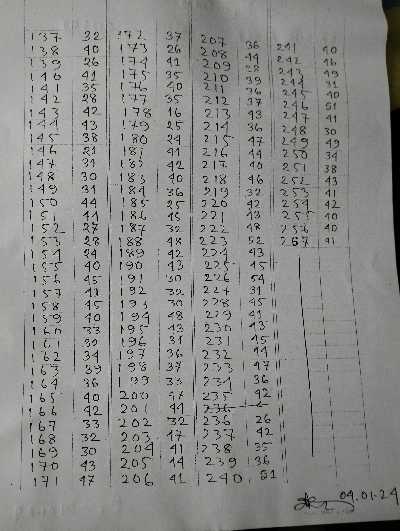 137 32 172 37 207 36 241 40
138 40 173 26 208 44 242 46
139 26 174 41 209 28 243 49
140 41 175 35 210 39 244 31
141 35 176 40 211 36 245 40
142 28 177 35 212 37 246 51
143 42 178 16 213 43 247 41
144 43 179 25 214 36 248 30
145 38 180 24 215 47 249 49
146 21 181 41 216 44 250 34
147 31 182 42 217 40 251 38
148 30 183 40 218 46 252 43
149 31 184 36 219 32 253 41
150 44 185 25 220 42 254 42
151 44 186 45 221 43 255 40
152 27 187 32 222 48 256 40
153 28 188 48 223 52 257 41
154 24 189 42 224 43
155 40 190 43 225 45
156 45 191 30 226 54
157 41 192 32 227 31
158 45 193 30 228 45
159 40 194 48 229 41
160 33 195 43 230 43
161 30 196 31 231 45
162 34 197 36 232 44
163 39 198 37 233 47
164 36 199 33 234 36
165 40 200 47 235 42
166 42 201 44
167 33 202 32 236 26
168 32 203 47 237 42
169 30 204 41 238 35
170 43 205 44 239 36
171 47 206 41 240 51
04.01.24